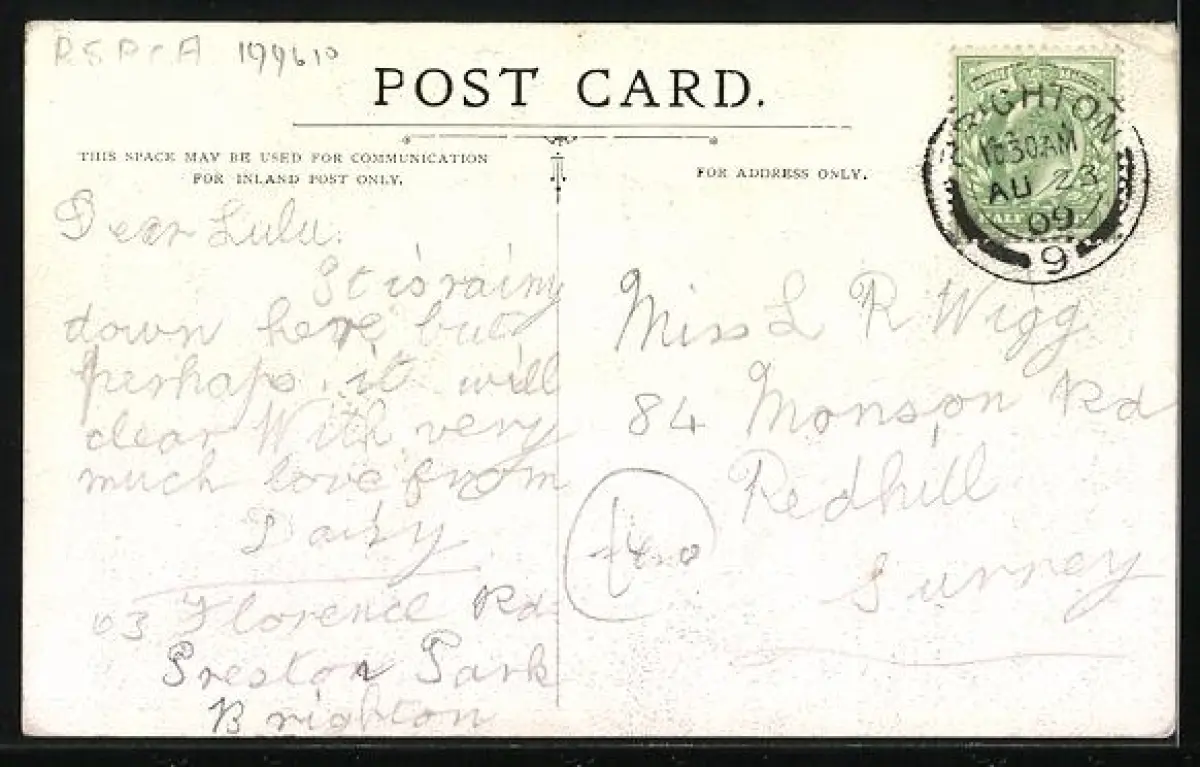 RSPCA 199610
POST CARD.
THIS SPACE MAY BE USED FOR COMMUNICATION
FOR INLAND POST ONLY.
FOR ADDRESS ONLY.
BRIGHTON
10.30AM
AU 23
09
9
HALF
Dear Lulu.
It is rainy
down here but
perhaps it will
clear With very
much love from
Daisy
03 Florence Rd
Preston Park
Brighton
Miss L R Wigg
84 Monson Rd
Redhill
Surrey